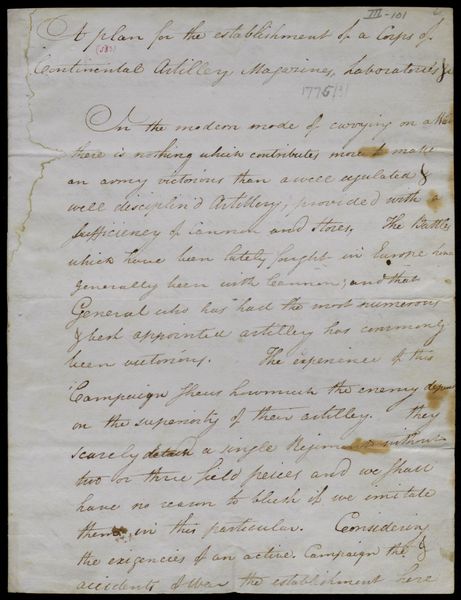 III-101
A plan for the establishment of a Corps of
(580)
Continental Artillery, Magazines, Laboratories &c
1776(?)
In the modern mode of carrying on a War
there is nothing which contributes more to make
an army victorious than a well regulated &
well disciplin'd Artillery; provided with a
sufficiency of Cannon and Stores. The Battles
which have been lately fought in Europe have
generally been with Cannon; and that
General who has had the most numerous
& best appointed artillery has commonly
been victorious. The experience of this
Campaign shews howmuch the enemy depend
on the superiority of their artillery. They
scarcely detach a single Regiment without
two or three field peices and we shall
have no reason to blush if we imitate
them in this particular. Considering
the exigencies of an active Campaign the &
accidents of war the establishment here